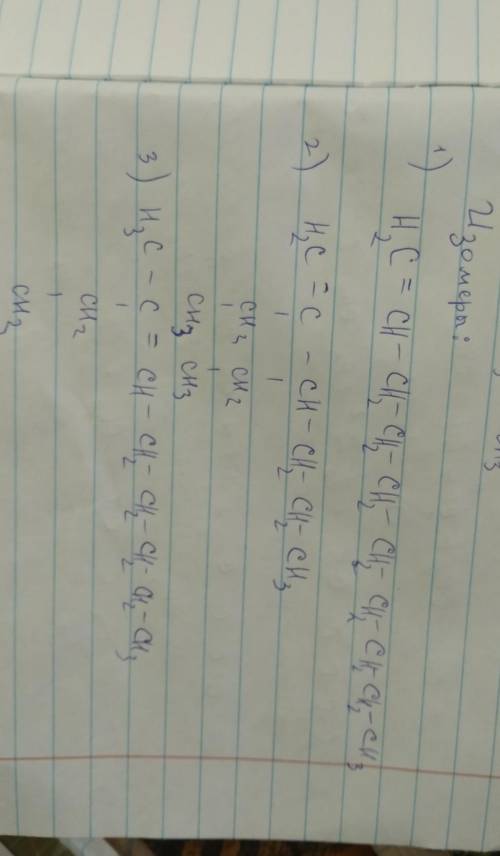 CH3
Изомеры:
1) H2C = CH – CH2 – CH2 – CH2 – CH2 – CH2 – CH2 CH2 – CH3
2) H2C = C – CH – CH2 – CH2 – CH3
CH2 CH2
CH3 CH3
3) H3C – C = CH – CH2 – CH2 – CH2 – CH2 – CH3
CH2
CH3